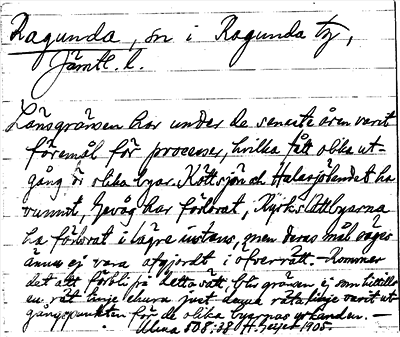 Ragunda, sn i Ragunda tg,
Jämtl. l.
Länsgränsen har under de senaste åren varit
föremål för processer, hvilka fått olika ut-
gång i olika byar. Köttsjön och Halasjöbendet ha
vunnit, Gevåg har förlorat, Kyrks Attbyarna
ha förlorat i lägre instans, men deras mål säges
ännu ej vara afgjordt i öfverrätt. — Kommer
det att förbli på detta sätt, blir gränsen ej som hittills
en rät linje ehuru just denna räta linje varit ut-
gångspunkten för de olika byarnas yrkanden. —
Alma 508:38 H. Geijer 1905.